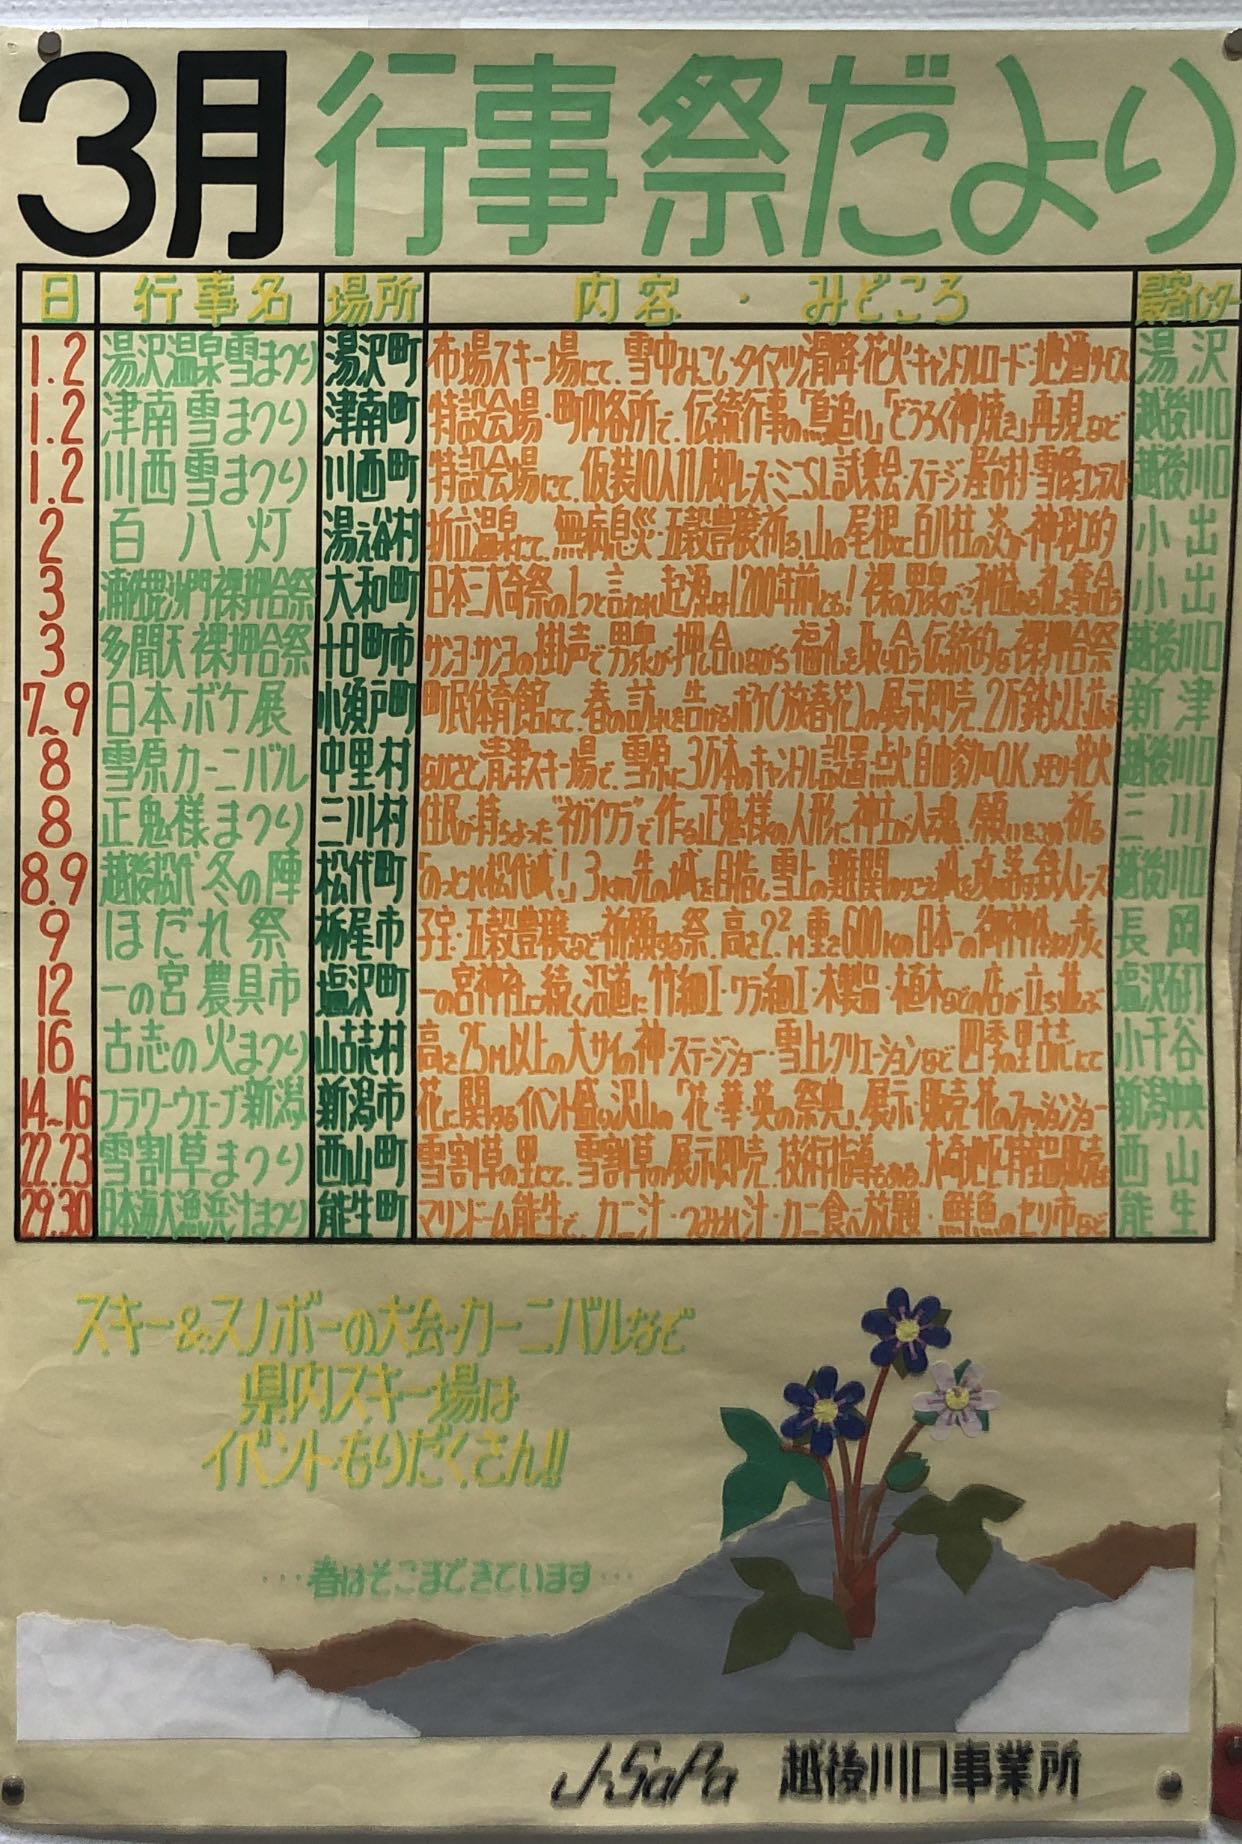 3月行事祭だより
日 行事名 場所 内容・みどころ 最寄インター
1.2 湯沢温泉雪まつり 湯沢町 布場スキー場にて、雪中みこし・タイマツ滑降・花火・キャンドルロード・地酒サービス 湯沢
1.2 津南雪まつり 津南町 特設会場・町内各所で、伝統行事の「鳥追い」「どうろく神焼き」再現など 越後川口
1.2 川西雪まつり 川西町 特設会場にて、仮装10人11脚レース・ミニSL試乗会・ステージ・屋台村・雪像コンテスト 越後川口
2 百八灯 湯之谷村 折立温泉にて、無病息災・五穀豊穣祈る。山の尾根に百八灯の炎が神秘的 小出
3 浦佐毘沙門裸押合祭 大和町 日本三大奇祭の1つと言われ起源は1200年前とも!裸の男衆がご利益ある札を奪合う 小出
3 多聞天裸押合祭 十日町市 サンヨ・サンヨの掛声で男衆が押し合いながら福札を取り合う伝統的な裸押合祭 越後川口
7~9 日本ボケ展 小須戸町 町民体育館にて、春の訪れを告げるボケ(放春花)の展示即売、2万鉢以上並ぶ 新津
8 雪原カーニバル 中里村 なかさと清津スキー場で、雪原に3万本のキャンドル設置・点火自由参加OK
越後川口
8 正鬼様まつり 三川村 住民が持ちよった で作る正鬼様の人形に神主が入魂、願いをこめ祈る 三川
8.9 越後松代冬の陣 松代町 「のっとれ松代城!」3km先の城を目指し雪上の難関 鉄人レース 越後川口
9 ほだれ祭 栃尾市 子宝・五穀豊穣など祈願する祭。高さ2.2M重さ600Kgの日本一の御神体 長岡
12 一の宮農具市 塩沢町 一の宮神社に続く沿道に竹細工・ワラ細工・木製品・植木などの店が立ち並ぶ 塩沢石打
16 古志の火まつり 山古志村 高さ25M以上の大サイの神・ステージショー・雪上レクリエーションなど四季の里古志にて 小千谷
14~16 フラワーウェーブ新潟 新潟市 花に関するイベント盛り沢山の「花・華・英の祭典」。展示・販売・花のファッションショー 新潟中央
22.23 雪割草まつり 西山町 雪割草の里にて、雪割草の展示即売、技術指導もあり。大崎地区特設即売 西山
29.30 日本海大漁浜汁まつり 能生町 マリンドーム能生で、カニ汁・つみれ汁・カニ食べ放題・鮮魚のセリ市など 能生
スキー&スノボーの大会・カーニバルなど
県内スキー場は
イベントもりだくさん!!
…春はそこまできています…
J-SaPa 越後川口事業所